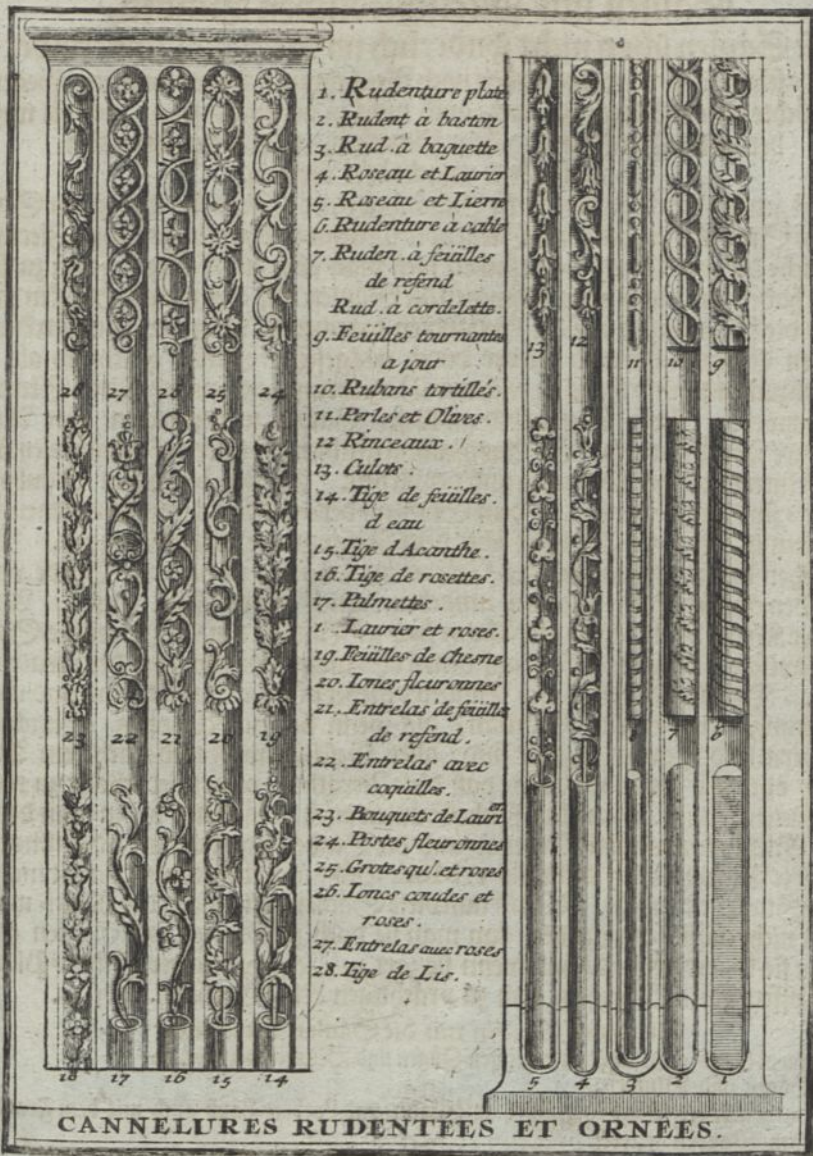 1. Rudenture plate
2. Rudent à baston
3. Rud. à baguette
4. Roseau et Laurier
5. Roseau et Lierre
6. Rudenture à cable
7. Ruden. à feüilles
de refend
Rud. à cordelette.
9. Feüilles tournantes
a jour
10. Rubans tortillés.
11. Perles et Olives.
12 Rinceaux.
13. Culots.
14. Tige de feüilles.
d eau
15. Tige d Acanthe.
16. Tige de rosettes.
17. Palmettes.
1 Laurier et roses.
19. Feüilles de chesne
20. Ioncs fleuronnes
21. Entrelas de feüilles
de refend.
22. Entrelas avec
coquilles.
23. Bouquets de Laurier
24. Postes fleuronnes
25. Grotesqu. et roses
26. Ioncs coudes et
roses.
27. Entrelas avec roses
28. Tige de Lis.
28 27 26 25 24
23 22 21 20 19
18 17 16 15 14
13 12 11 10 9
8 7 6
5 4 3 2 1
CANNELURES RUDENTÉES ET ORNÉES.